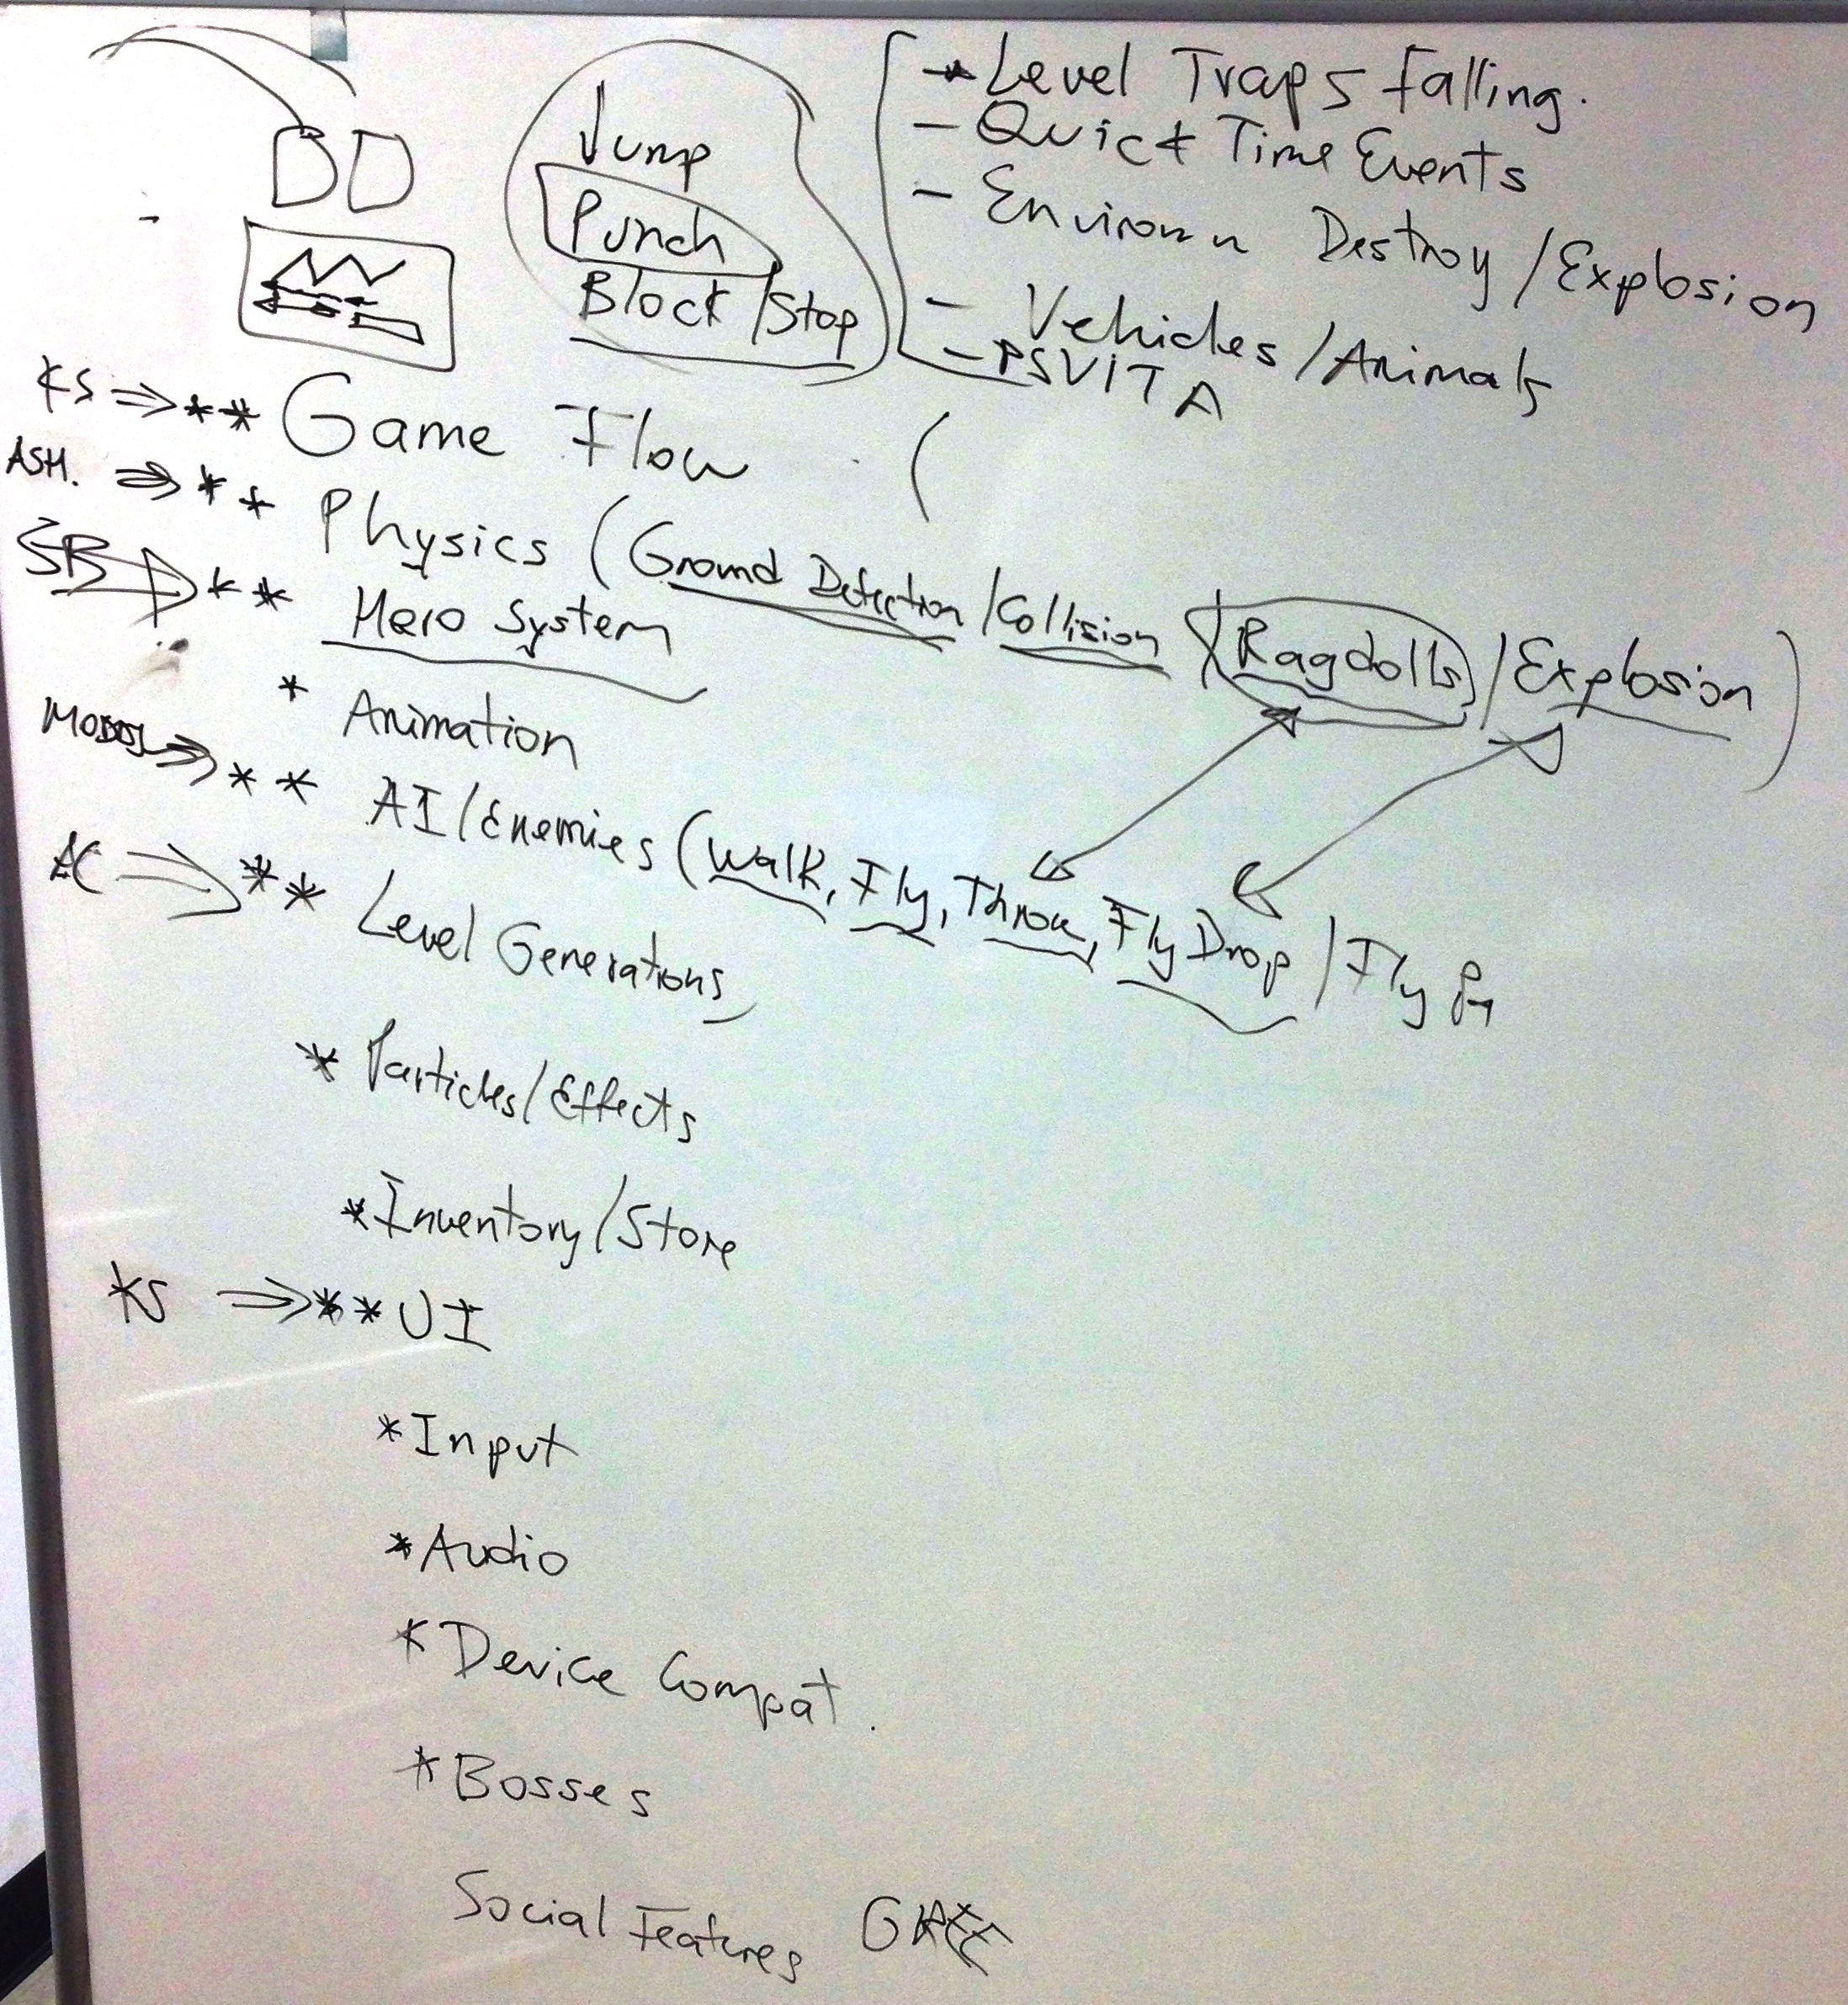 Jump
Punch
Block/Stop
- Level Traps Falling.
- Quick Time Events
- Environ Destroy/Explosion
- Vehicles/Animals
- PSVITA
KS ⇒ ** Game Flow (
ASH. ⇒ ** Physics (Ground Detection/Collision/Ragdolls/Explosion)
SB ⇒ ** Hero System
* Animation
⇒ ** AI/Enemies (Walk, Fly, Throw, Fly Drop/Fly
AC ⇒ ** Level Generations
* Particles/Effects
* Inventory/Store
KS ⇒ ** UI
* Input
* Audio
* Device Compat.
* Bosses
Social Features GREE